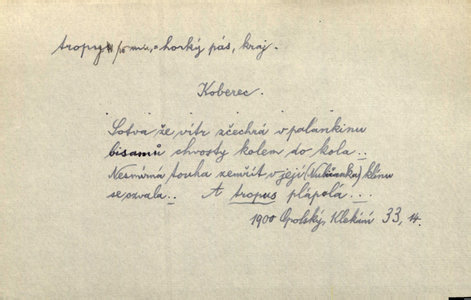 tropy m, horký pás, kraj.
Koberec.
Sotva že vítr zčechrá v palankinu
bisamů chvosty kolem do kola..
Nesmírná touha zemřít v její (Nubianka) klínu
se ozvala.. A tropus plápolá...
1900 Opolský, Klekání 33, 14.